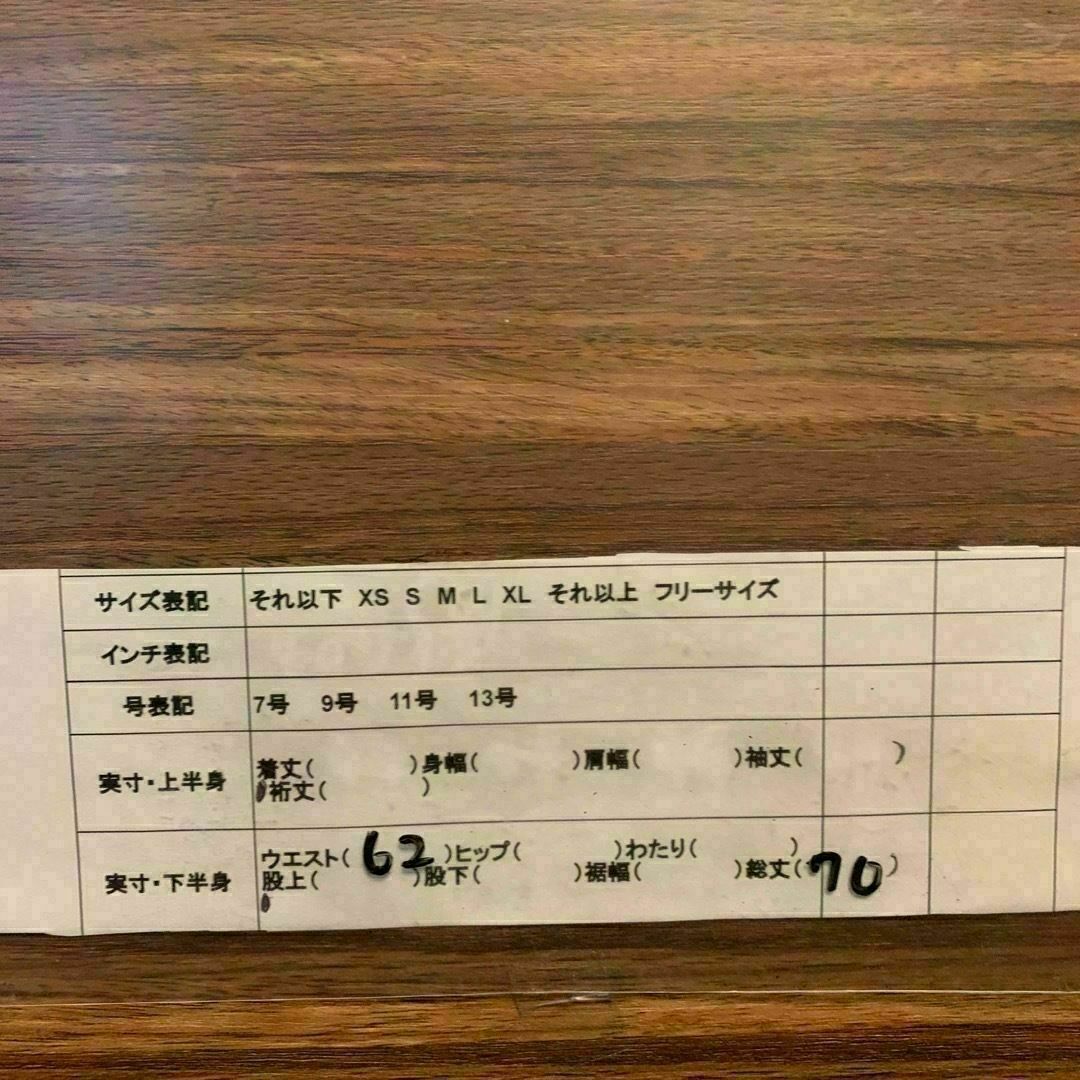 サイズ表記 それ以下 XS S M L XL それ以上 フリーサイズ
インチ表記
号表記 7号 9号 11号 13号
実寸・上半身 着丈( )身幅( )肩幅( )袖丈( )
裄丈( )
実寸・下半身 ウエスト( 62 )ヒップ( )わたり( )
股上( )股下( )裾幅( )総丈( 70 )